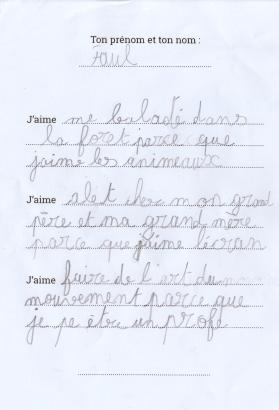 Ton prénom et ton nom :
Paul
J'aime me baladé dans
la foret parce que
jaime les animeaux
J'aime alet cher mon grand
père et ma grand mère
parce que jaime lécran
J'aime faire de l'art du
mouvement parce que
je pe être un profe